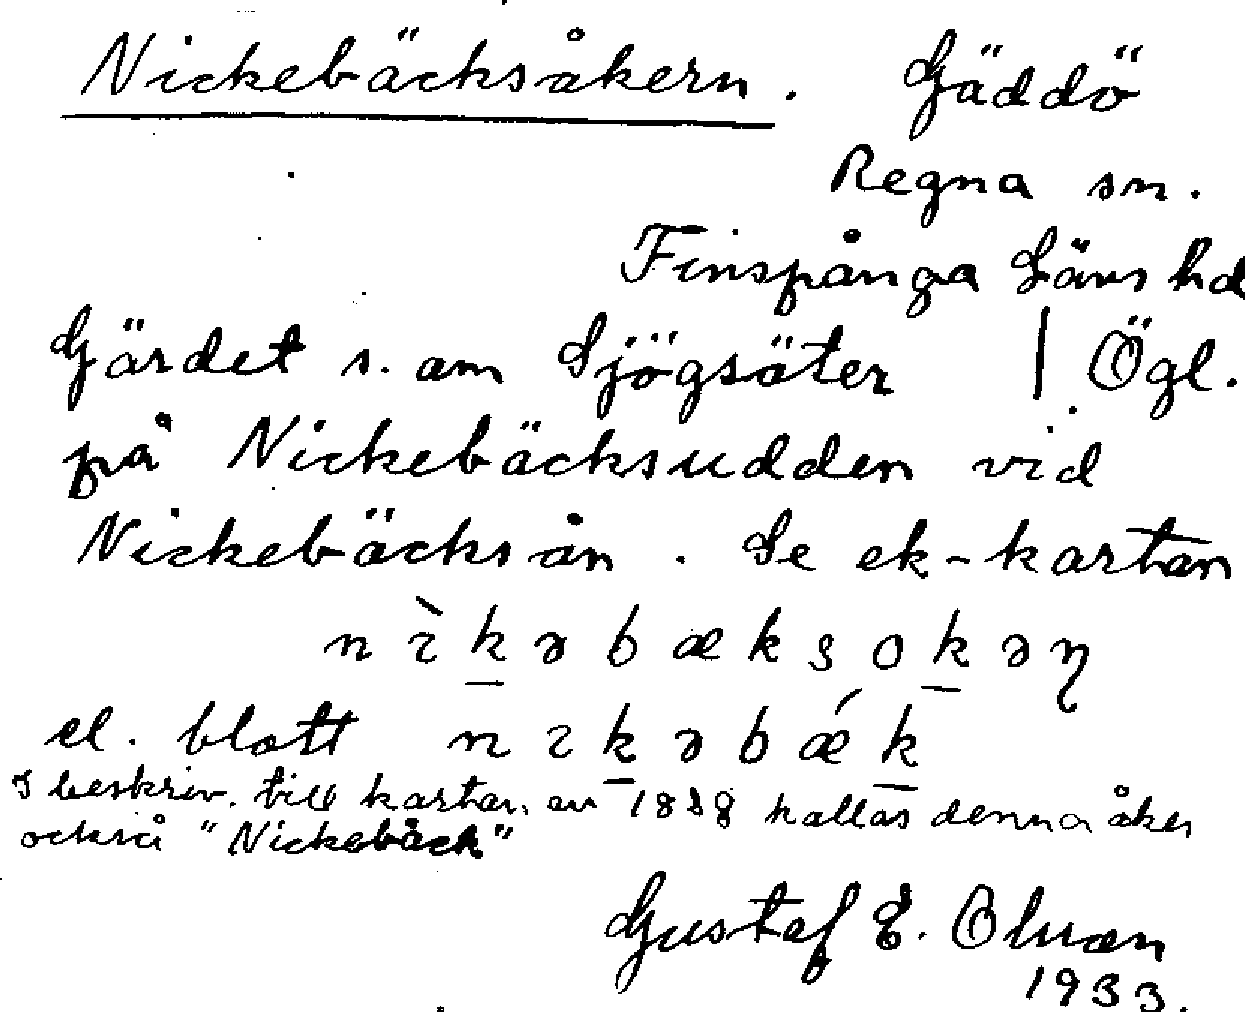 Nickebäcksåkern. Gäddö
Regna sn.
Finspånga Läns hd
Gärdet s. om Sjögsäter | Ögl.
på Nickebäcksudden vid
Nickebäcksån. Se ek-kartan
nɩ̀kəbæksokəƞ
el. blott nɩkəbǽk
I beskriv. till kartan av kallas denna åker
också "Nickebäck"
Gustaf E. Olsson
1933.